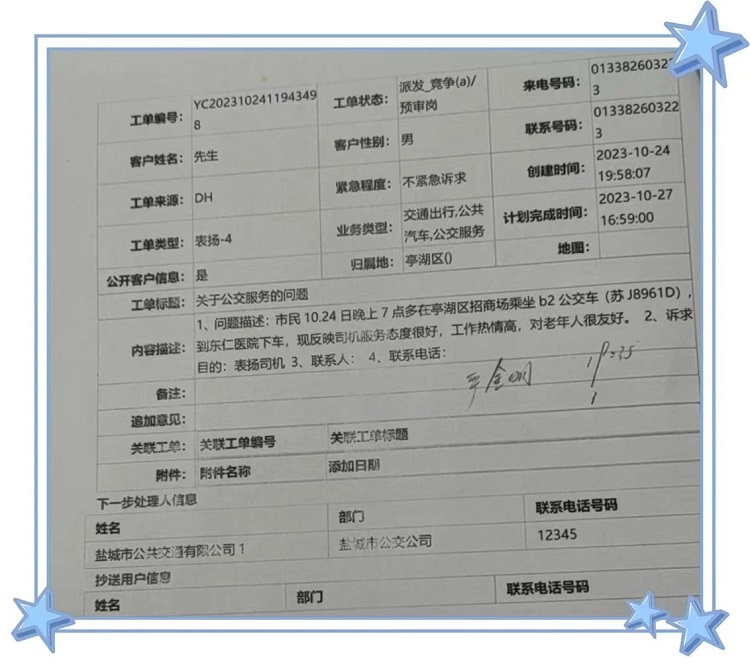 工单编号： YC2023102411943498 工单状态： 派发_竞争(a)/预审岗 来电号码： 013382603223
客户姓名： 先生 客户性别： 男 联系号码： 013382603223
工单来源： DH 紧急程度： 不紧急诉求 创建时间： 2023-10-24 19:58:07
工单类型： 表扬-4 业务类型： 交通出行,公共汽车,公交服务 计划完成时间： 2023-10-27 16:59:00
公开客户信息： 是 归属地： 亭湖区() 地图：
工单标题： 关于公交服务的问题
内容描述： 1、问题描述：市民 10.24 日晚上 7 点多在亭湖区招商场乘坐 b2 公交车（苏 J8961D），
到东仁医院下车，现反映司机服务态度很好，工作热情高，对老年人很友好。 2、诉求
目的：表扬司机 3、联系人： 4、联系电话：
备注：
追加意见：
关联工单： 关联工单编号 关联工单标题
附件： 附件名称 添加日期
下一步处理人信息
姓名 部门 联系电话号码
盐城市公共交通有限公司 1 盐城市公交公司 12345
抄送用户信息
姓名 部门 联系电话号码